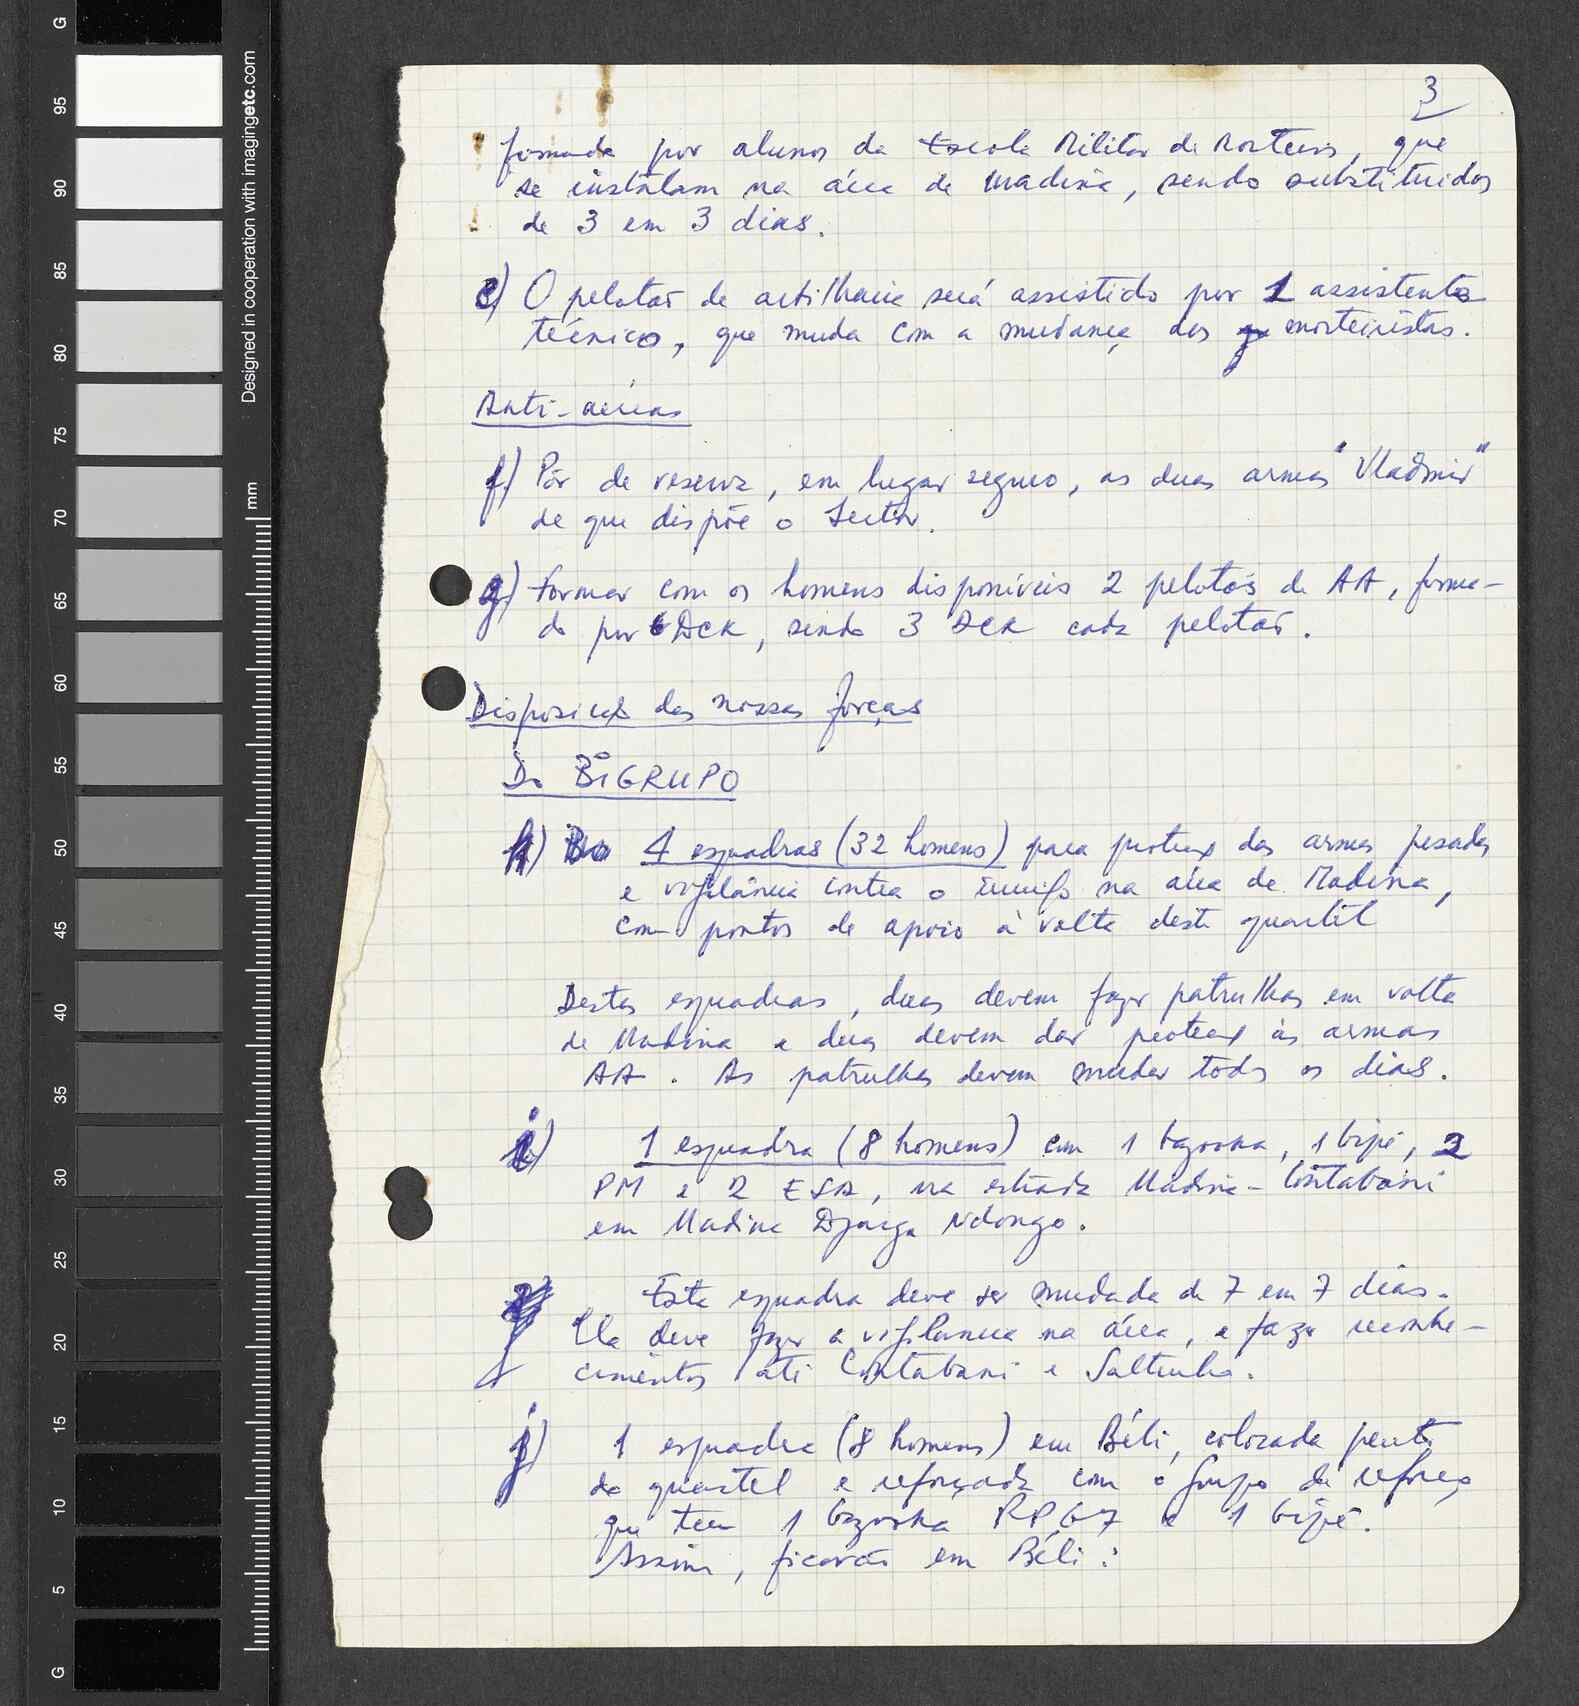 3
formada por alunos da Escola Militar de Morteiros, que
se instalam na área de Madina, sendo substituidos
de 3 em 3 dias.
e) O pelotão de artilharia será assistido por 1 assistente
técnico, que muda com a mudança dos morteiristas.
Anti-aéreas
f) Pôr de reserva, em lugar seguro, as duas armas "Vladimir"
de que dispõe o Sector.
g) Formar com os homens disponíveis 2 pelotões de AA, forma-
do por 6 DCK, sendo 3 DCK cada pelotão.
Disposição das nossas forças
Do BIGRUPO
h) 4 esquadras (32 homens) para protecç das armas pesadas
e vigilância contra o inimigo na área de Madina,
com pontos de apoio à volta deste quartel
Destas esquadras, duas devem fazer patrulhas em volta
de Madina e duas devem dar protecç às armas
AA. As patrulhas devem mudar todos os dias.
i) 1 esquadra (8 homens) com 1 bazooka, 1 bipé, 2
PM e 2 ESA, na estrada Madina-Contabani
em Madina Djarga Ndongo.
Esta esquadra deve ser mudada de 7 em 7 dias.
Ela deve fazer a vigilancia na área, e fazer reconhe-
cimentos até Contabani e Saltinho.
j) 1 esquadra (8 homens) em Béli, colocada perto
do quartel e reforçada com o grupo de reforço
que tem 1 bazooka RPG7 e 1 bipé.
Assim, ficarão em Béli:
Designed in cooperation with imagingetc.com
mm
G
95
90
85
80
75
70
65
60
55
50
45
40
35
30
25
20
15
10
5
G